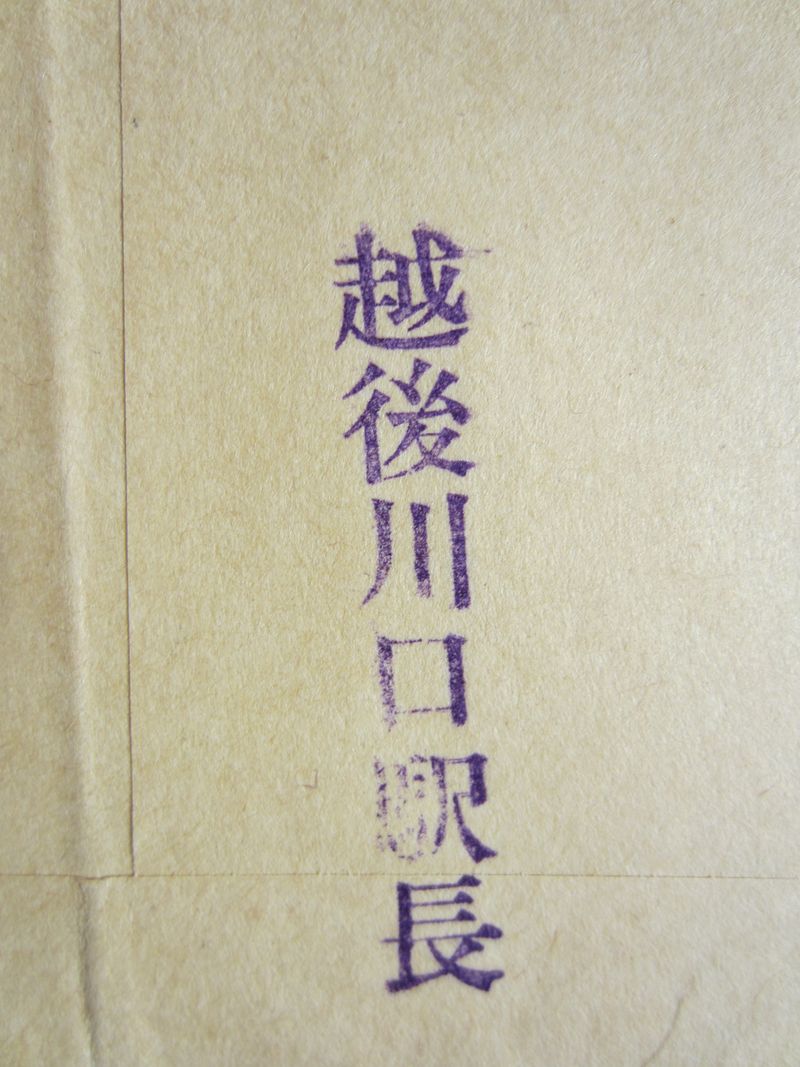 越後川口駅長